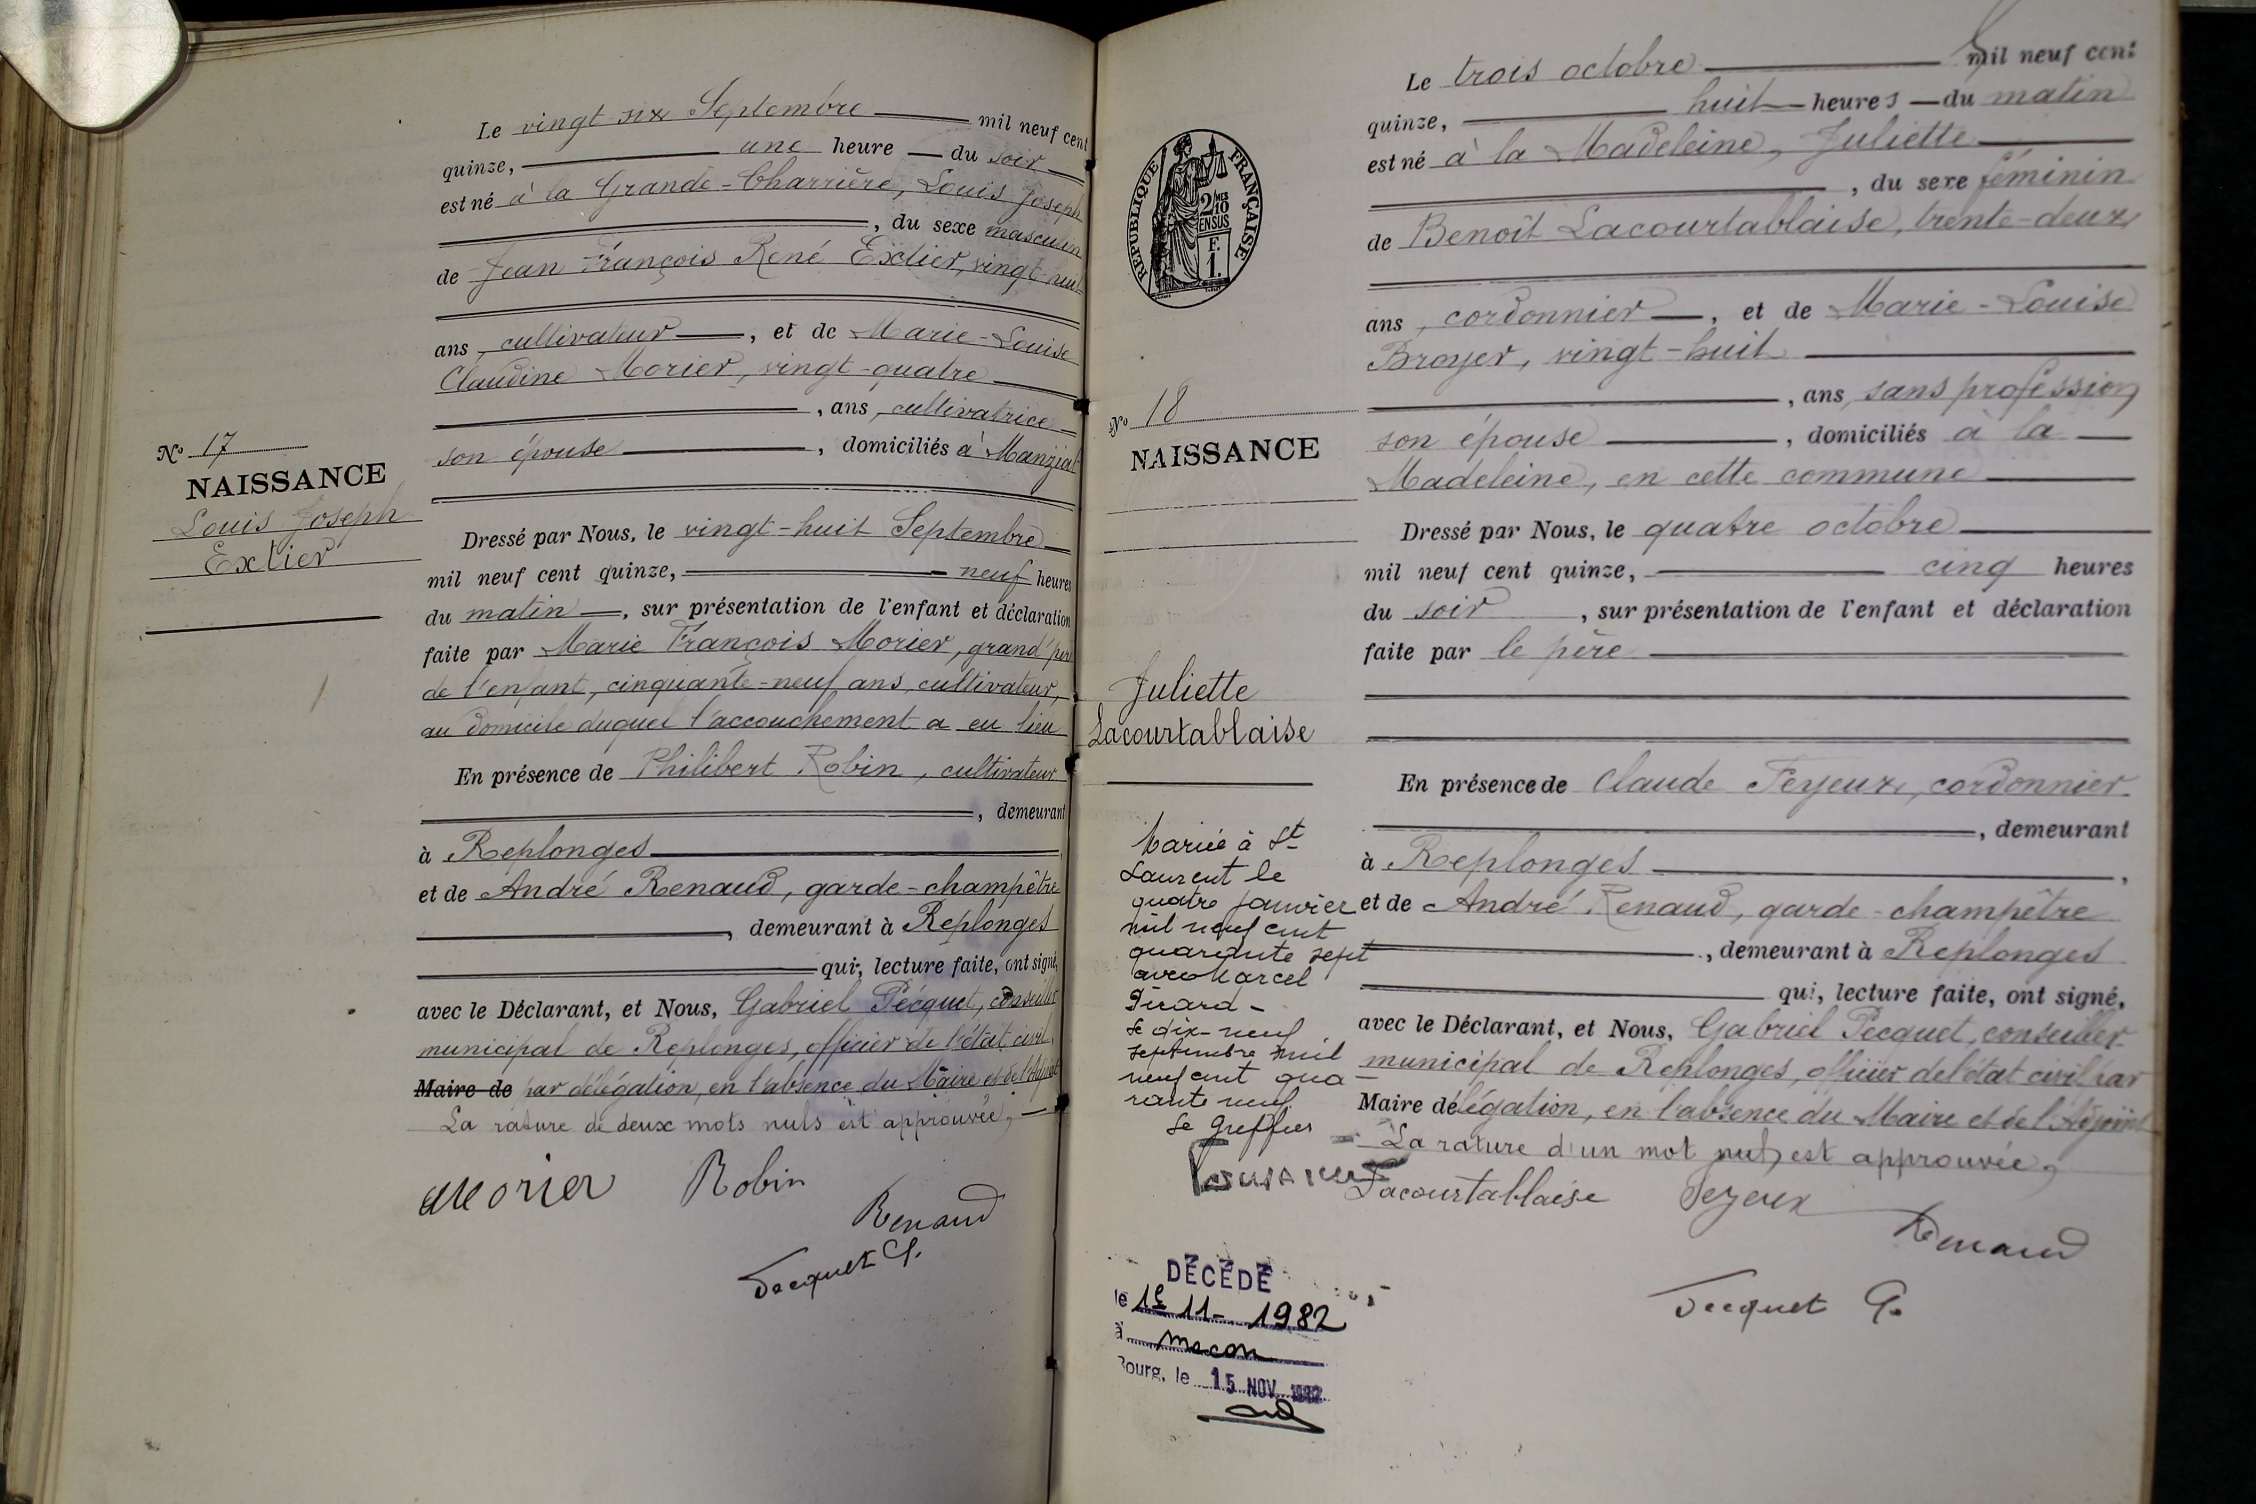 Le vingt six Septembre mil neuf cent
quinze, une heure du soir
est né à la Grande-Charrière, Louis Joseph
, du sexe masculin
de Jean François René Extier, vingt-neuf
ans, cultivateur, et de Marie-Louise
Claudine Morier, vingt-quatre
, ans, cultivatrice
son épouse, domiciliés à Manziat
Nº 17
NAISSANCE
Louis Joseph
Extier
Dressé par Nous, le vingt-huit Septembre
mil neuf cent quinze, neuf heures
du matin, sur présentation de l'enfant et déclaration
faite par Marie François Morier, grand'père
de l'enfant, cinquante-neuf ans, cultivateur,
au domicile duquel l'accouchement a eu lieu
En présence de Philibert Robin, cultivateur
, demeurant
à Replonges
et de André Renaud, garde-champêtre
, demeurant à Replonges
qui, lecture faite, ont signé,
avec le Déclarant, et Nous, Gabriel Pecquet, conseiller
municipal de Replonges, officier de l'état civil,
Maire de par délégation, en l'absence du Maire et de l'Adjoint
La rature de deux mots nuls est approuvée,
Morier Robin
Renaud
Pecquet G.
RÉPUBLIQUE FRANÇAISE
2 MES
10
EN SUS
F.
1.
Le trois octobre mil neuf cent
quinze, huit heures du matin
est né à la Madeleine, Juliette
, du sexe féminin
de Benoît Lacourtablaise, trente-deux
ans, cordonnier, et de Marie-Louise
Broyer, vingt-huit
, ans, sans profession
son épouse, domiciliés à la
Madeleine, en cette commune
Nº 18
NAISSANCE
Juliette
Lacourtablaise
Dressé par Nous, le quatre octobre
mil neuf cent quinze, cinq heures
du soir, sur présentation de l'enfant et déclaration
faite par le père
En présence de Claude Feyeux, cordonnier
, demeurant
à Replonges,
et de André Renaud, garde-champêtre
, demeurant à Replonges
qui, lecture faite, ont signé,
avec le Déclarant, et Nous, Gabriel Pecquet, conseiller
municipal de Replonges, officier de l'état civil par
Maire délégation, en l'absence du Maire et de l'Adjoint
La rature d'un mot nul, est approuvée,
Lacourtablaise Feyeux
Renaud
Pecquet G.
Mariée à St
Laurent le
quatre janvier
mil neuf cent
quarante sept
avec Marcel
Girard
Le dix-neuf
septembre mil
neuf cent qua-
rante neuf
Le Greffier
DÉCÉDÉ
le 1er 11 - 1982
à macon
Bourg, le 15 NOV. 1982